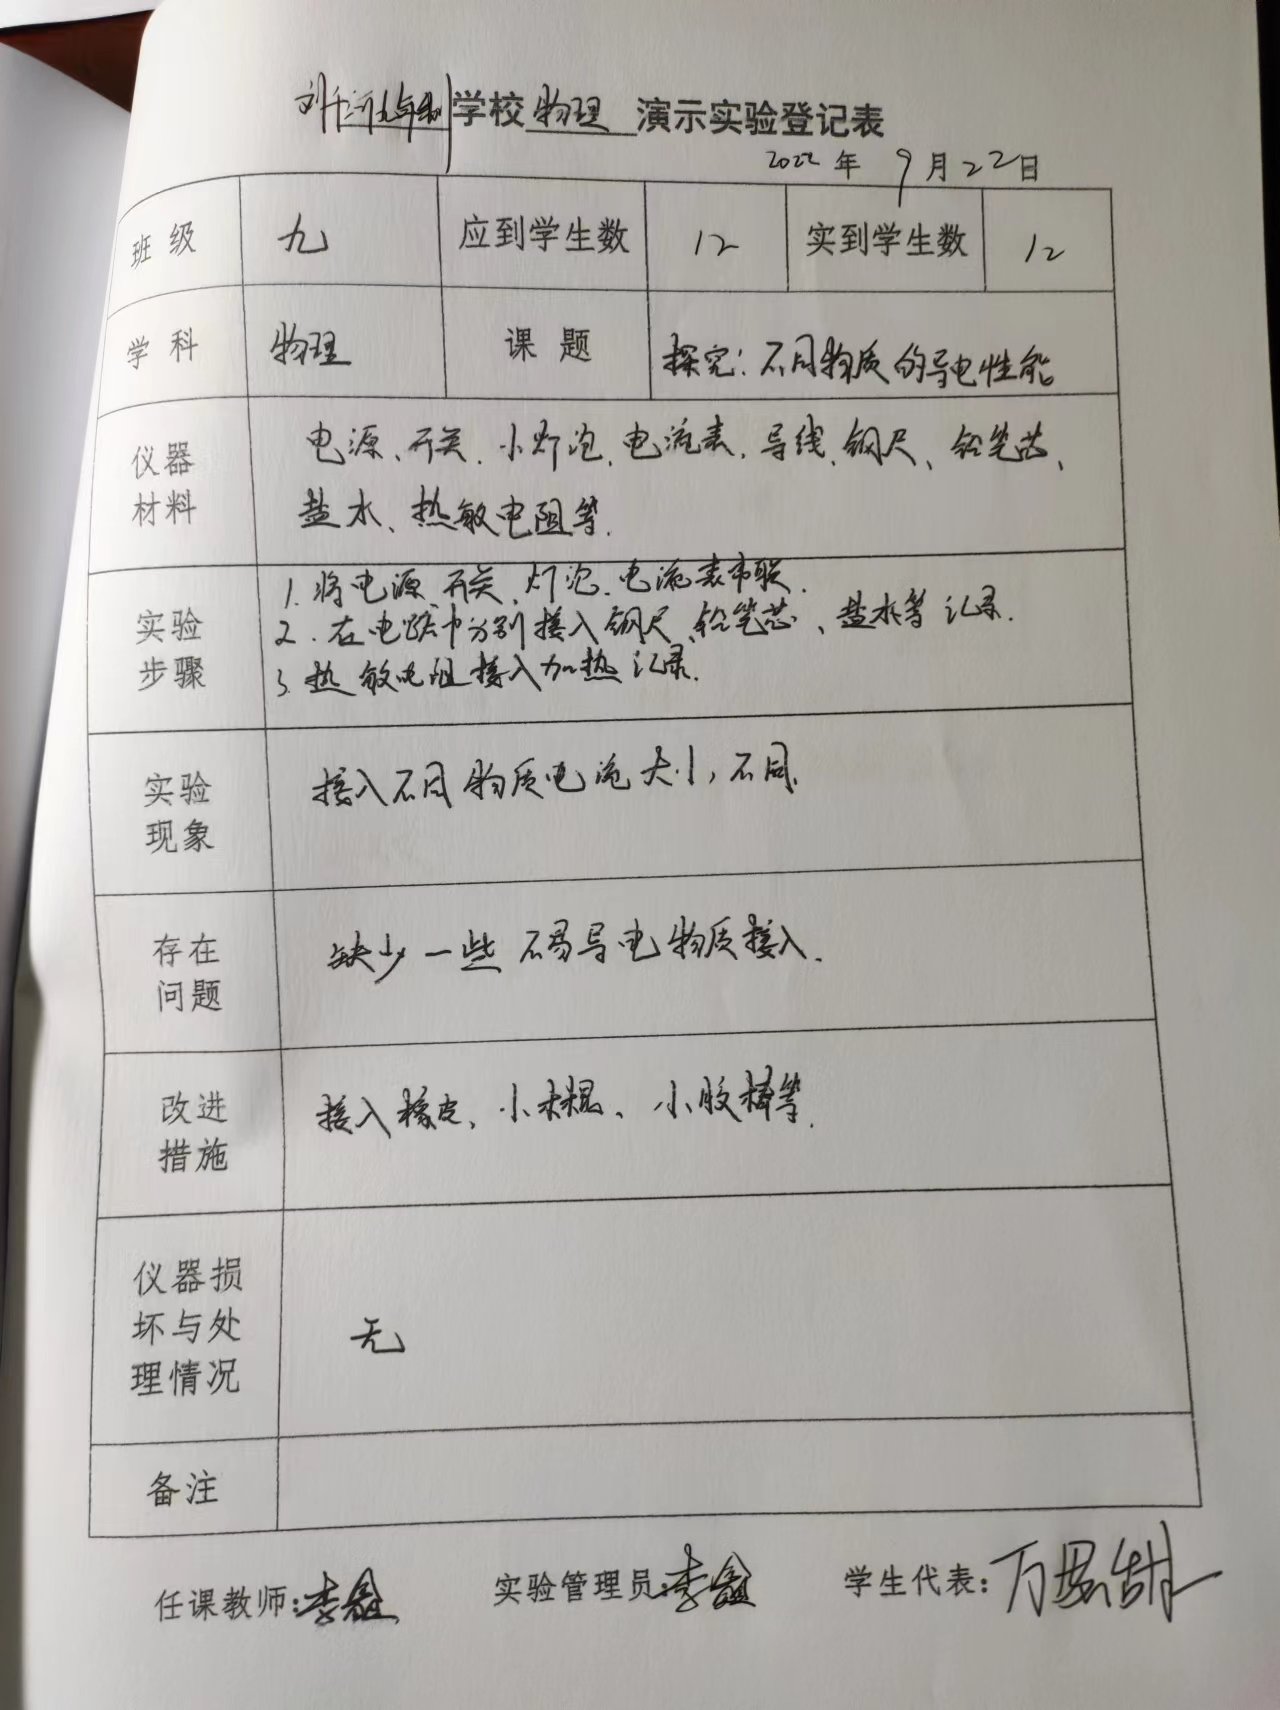 学校 物理 演示实验登记表
2022 年 9 月 22 日
班级 九 应到学生数 12 实到学生数 12
学科 物理 课题 探究：不同物质的导电性能
仪器材料
电源、开关、小灯泡、电流表、导线、钢尺、铅笔芯、
盐水、热敏电阻等.
实验步骤
1. 将电源、开关、灯泡、电流表串联.
2. 在电路中分别接入钢尺、铅笔芯、盐水等记录.
3. 热敏电阻接入加热记录.
实验现象
接入不同物质电流大小，不同.
存在问题
缺少一些不易导电物质接入.
改进措施
接入橡皮、小木棍、小胶棒等.
仪器损坏与处理情况
无
备注
任课教师：李鑫 实验管理员：李鑫 学生代表：万